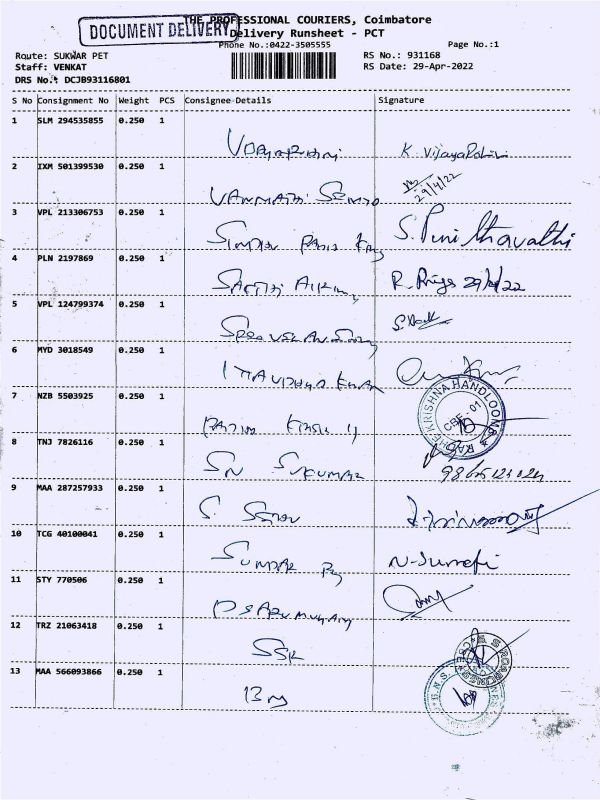 THE PROFESSIONAL COURIERS, Coimbatore
DOCUMENT DELIVERY
Delivery Runsheet - PCT
Phone No.:0422-3505555 Page No.:1
Route: SUKWAR PET RS No.: 931168
Staff: VENKAT RS Date: 29-Apr-2022
DRS No.: DCJB93116801
S No Consignment No Weight PCS Consignee Details Signature
1 SLM 294535855 0.250 1
K. Vijaya
2 IXM 501399530 0.250 1
VANMATHI
29/4/22
3 VPL 213306753 0.250 1
S. Punithavathi
4 PLN 2197869 0.250 1
SAKTHI
R. Priya 29/4/22
5 VPL 124799374 0.250 1
6 MYD 3018549 0.250 1
7 NZB 5503925 0.250 1
RADHE KRISHNA HANDLOOMS
CBE - 01
8 TNJ 7826116 0.250 1
SN SUKUMAR
9 MAA 287257933 0.250 1
S.
10 TCG 40100041 0.250 1
SUNDAR
11 STY 770506 0.250 1
PS ARUMUGAM
12 TRZ 21063418 0.250 1
SSK
13 MAA 566093866 0.250 1